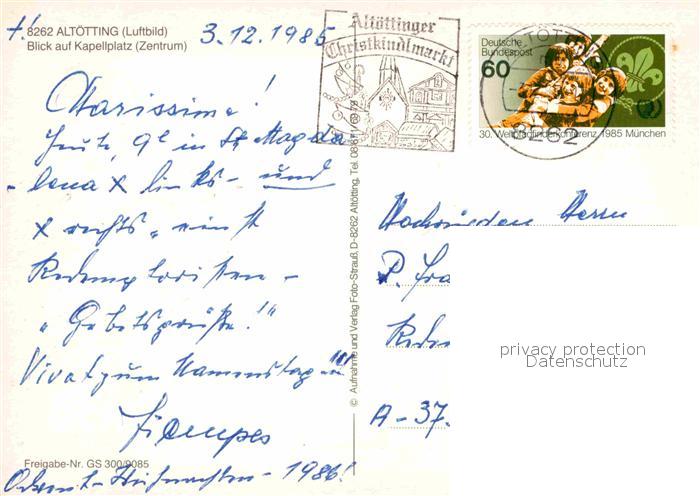 8262 ALTÖTTING (Luftbild)
Blick auf Kapellplatz (Zentrum)
3.12.1985
Carissime!
Heute, in St. Magda
lena x links - und
x rechts
Redemptoristen -
"Gebetsgrüße!"
Vivat zum Namenstag !!!
Advent - Weihnachten - 1986!
Freigabe-Nr. GS 300/9085
© Aufnahme und Verlag Foto-Strauß, D-8262 Altötting, Tel. 08671/6373
Altöttinger
Christkindlmarkt
Deutsche
Bundespost
60
30. Weltpfadfinderkonferenz 1985 München
8262
Hochwürden Herrn
P. Fra
Rede
A-37.
privacy protection
Datenschutz